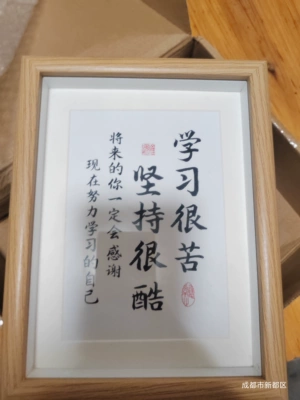 学习很苦
坚持很酷
将来的你一定会感谢
现在努力学习的自己
成都市新都区